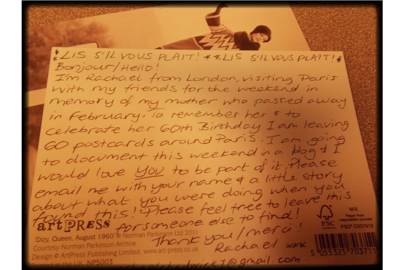 * LIS S'IL VOUS PLAIT! * * LIS S'IL VOUS PLAIT! *
Bonjour/Hello!
I'm Rachael from London, visiting Paris
with my friends for the weekend in
memory of my mother who passed away
in February. To remember her & to
celebrate her 60th Birthday I am leaving
60 postcards around Paris. I am going
to document this weekend in a blog & I
would love you to be part of it. Please
email me with your name & a little story
about what you were doing when you
found this! Please feel free to leave this
for someone else to find!
Thank you/merci!
Rachael
@gmail.com
artPRESS
Dizzy Queen, August 1960 © Norman Parkinson Ltd 2011
Courtesy Norman Parkinson Archive
Design © ArtPress Publishing Limited
FSC
MIX